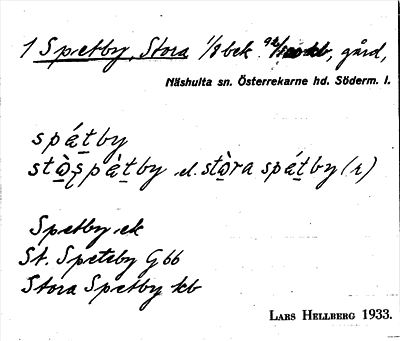 1 Spetby, Stora 1/8 bek. gård,
Näshulta sn. Österrekarne hd. Söderm. l.
spát̠by
stò̠ʂpàt̠by el. stò̠ra spát̠by (r)
Spetby ek
St. Speteby G 66
Stora Spetby kb
LARS HELLBERG 1933.